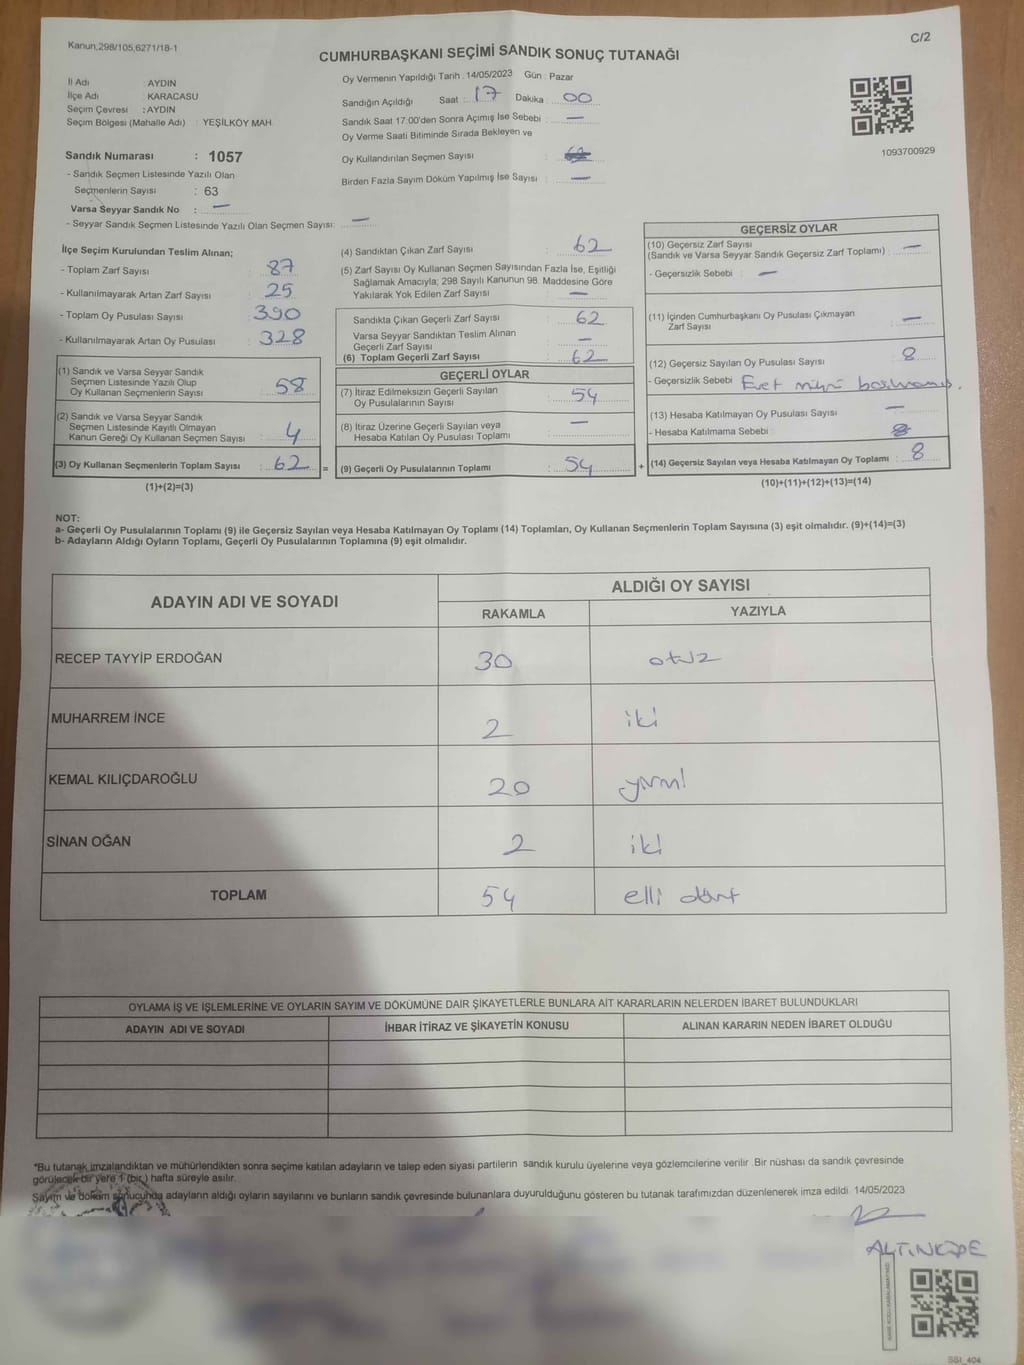 Kanun,298/105,6271/18-1
C/2
CUMHURBAŞKANI SEÇİMİ SANDIK SONUÇ TUTANAĞI
İl Adı : AYDIN
İlçe Adı : KARACASU
Seçim Çevresi : AYDIN
Seçim Bölgesi (Mahalle Adı) : YEŞİLKÖY MAH.
Oy Vermenin Yapıldığı Tarih : 14/05/2023 Gün : Pazar
Sandığın Açıldığı Saat : 17 Dakika : 00
Sandık Saat 17:00'den Sonra Açımış İse Sebebi : —
Oy Verme Saati Bitiminde Sırada Bekleyen ve
Oy Kullandırılan Seçmen Sayısı :
Birden Fazla Sayım Döküm Yapılmış İse Sayısı : —
1093700929
Sandık Numarası : 1057
- Sandık Seçmen Listesinde Yazılı Olan
Seçmenlerin Sayısı : 63
Varsa Seyyar Sandık No : —
- Seyyar Sandık Seçmen Listesinde Yazılı Olan Seçmen Sayısı: —
İlçe Seçim Kurulundan Teslim Alınan;
- Toplam Zarf Sayısı : 87
- Kullanılmayarak Artan Zarf Sayısı : 25
- Toplam Oy Pusulası Sayısı : 390
- Kullanılmayarak Artan Oy Pusulası : 328
(1) Sandık ve Varsa Seyyar Sandık
Seçmen Listesinde Yazılı Olup
Oy Kullanan Seçmenlerin Sayısı : 58
(2) Sandık ve Varsa Seyyar Sandık
Seçmen Listesinde Kayıtlı Olmayan
Kanun Gereği Oy Kullanan Seçmen Sayısı : 4
(3) Oy Kullanan Seçmenlerin Toplam Sayısı : 62 =
(1)+(2)=(3)
(4) Sandıktan Çıkan Zarf Sayısı : 62
(5) Zarf Sayısı Oy Kullanan Seçmen Sayısından Fazla İse, Eşitliği
Sağlamak Amacıyla; 298 Sayılı Kanunun 98. Maddesine Göre
Yakılarak Yok Edilen Zarf Sayısı : —
Sandıkta Çıkan Geçerli Zarf Sayısı : 62
Varsa Seyyar Sandıktan Teslim Alınan
Geçerli Zarf Sayısı : —
(6) Toplam Geçerli Zarf Sayısı : 62
GEÇERLİ OYLAR
(7) İtiraz Edilmeksizin Geçerli Sayılan
Oy Pusulalarının Sayısı : 54
(8) İtiraz Üzerine Geçerli Sayılan veya
Hesaba Katılan Oy Pusulası Toplamı : —
(9) Geçerli Oy Pusulalarının Toplamı : 54 +
GEÇERSİZ OYLAR
(10) Geçersiz Zarf Sayısı
(Sandık ve Varsa Seyyar Sandık Geçersiz Zarf Toplamı) : —
- Geçersizlik Sebebi : —
(11) İçinden Cumhurbaşkanı Oy Pusulası Çıkmayan
Zarf Sayısı : —
(12) Geçersiz Sayılan Oy Pusulası Sayısı : 8
- Geçersizlik Sebebi : Evet mührü basılmamış.
(13) Hesaba Katılmayan Oy Pusulası Sayısı : —
- Hesaba Katılmama Sebebi :
(14) Geçersiz Sayılan veya Hesaba Katılmayan Oy Toplamı : 8
(10)+(11)+(12)+(13)=(14)
NOT:
a- Geçerli Oy Pusulalarının Toplamı (9) ile Geçersiz Sayılan veya Hesaba Katılmayan Oy Toplamı (14) Toplamları, Oy Kullanan Seçmenlerin Toplam Sayısına (3) eşit olmalıdır. (9)+(14)=(3)
b- Adayların Aldığı Oyların Toplamı, Geçerli Oy Pusulalarının Toplamına (9) eşit olmalıdır.
ADAYIN ADI VE SOYADI ALDIĞI OY SAYISI
RAKAMLA YAZIYLA
RECEP TAYYİP ERDOĞAN 30 otuz
MUHARREM İNCE 2 iki
KEMAL KILIÇDAROĞLU 20 yirmi
SİNAN OĞAN 2 iki
TOPLAM 54 elli dört
OYLAMA İŞ VE İŞLEMLERİNE VE OYLARIN SAYIM VE DÖKÜMÜNE DAİR ŞİKAYETLERLE BUNLARA AİT KARARLARIN NELERDEN İBARET BULUNDUKLARI
ADAYIN ADI VE SOYADI İHBAR İTİRAZ VE ŞİKAYETİN KONUSU ALINAN KARARIN NEDEN İBARET OLDUĞU
*Bu tutanak imzalandıktan ve mühürlendikten sonra seçime katılan adayların ve talep eden siyasi partilerin sandık kurulu üyelerine veya gözlemcilerine verilir. Bir nüshası da sandık çevresinde
görülecek bir yere 1 (bir) hafta süreyle asılır.
Sayım ve döküm sonucunda adayların aldığı oyların sayılarını ve bunların sandık çevresinde bulunanlara duyurulduğunu gösteren bu tutanak tarafımızdan düzenlenerek imza edildi. 14/05/2023
SSI_404